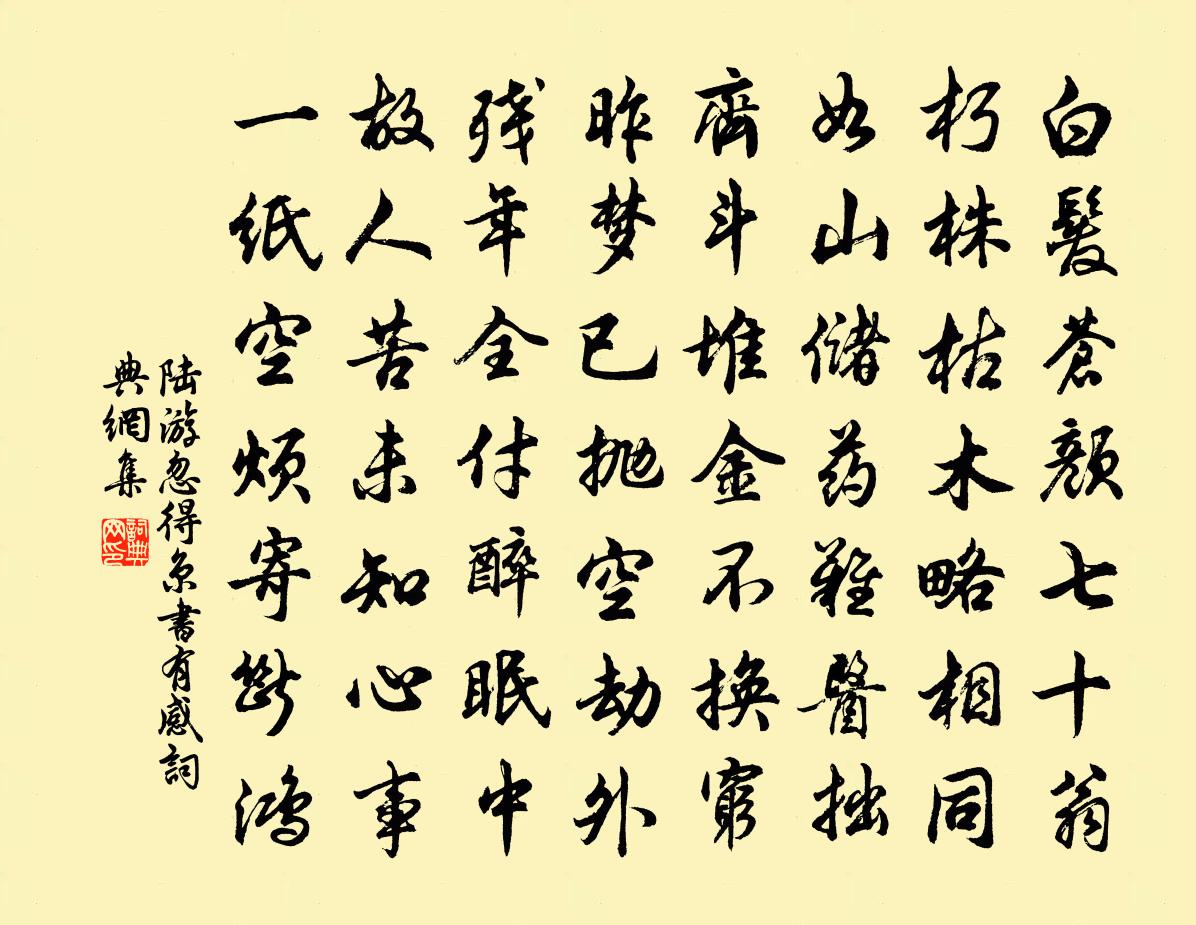 白髮蒼顏七十翁
朽株枯木略相同
如山儲药難醫拙
齊斗堆金不換窮
昨梦已抛空劫外
残年全付醉眠中
故人苦未知心事
一紙空煩寄斷鴻
陆游忽得京書有感詞
典網集
詞典网印